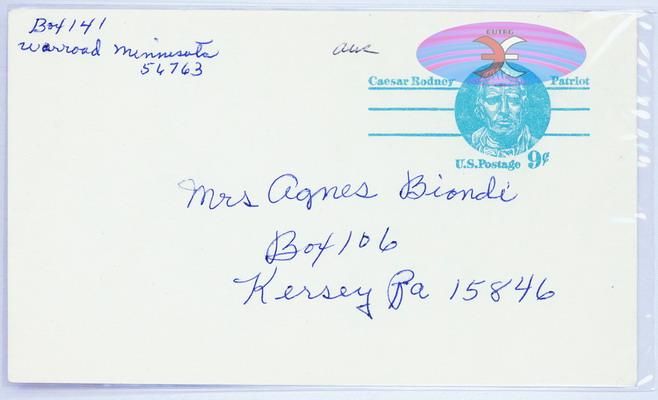 Box 141
Warroad Minnesota
56763
CUTBG
Caesar Rodney Patriot
U.S. Postage 9¢
Mrs Agnes Biondi
Box 106
Kersey Pa 15846